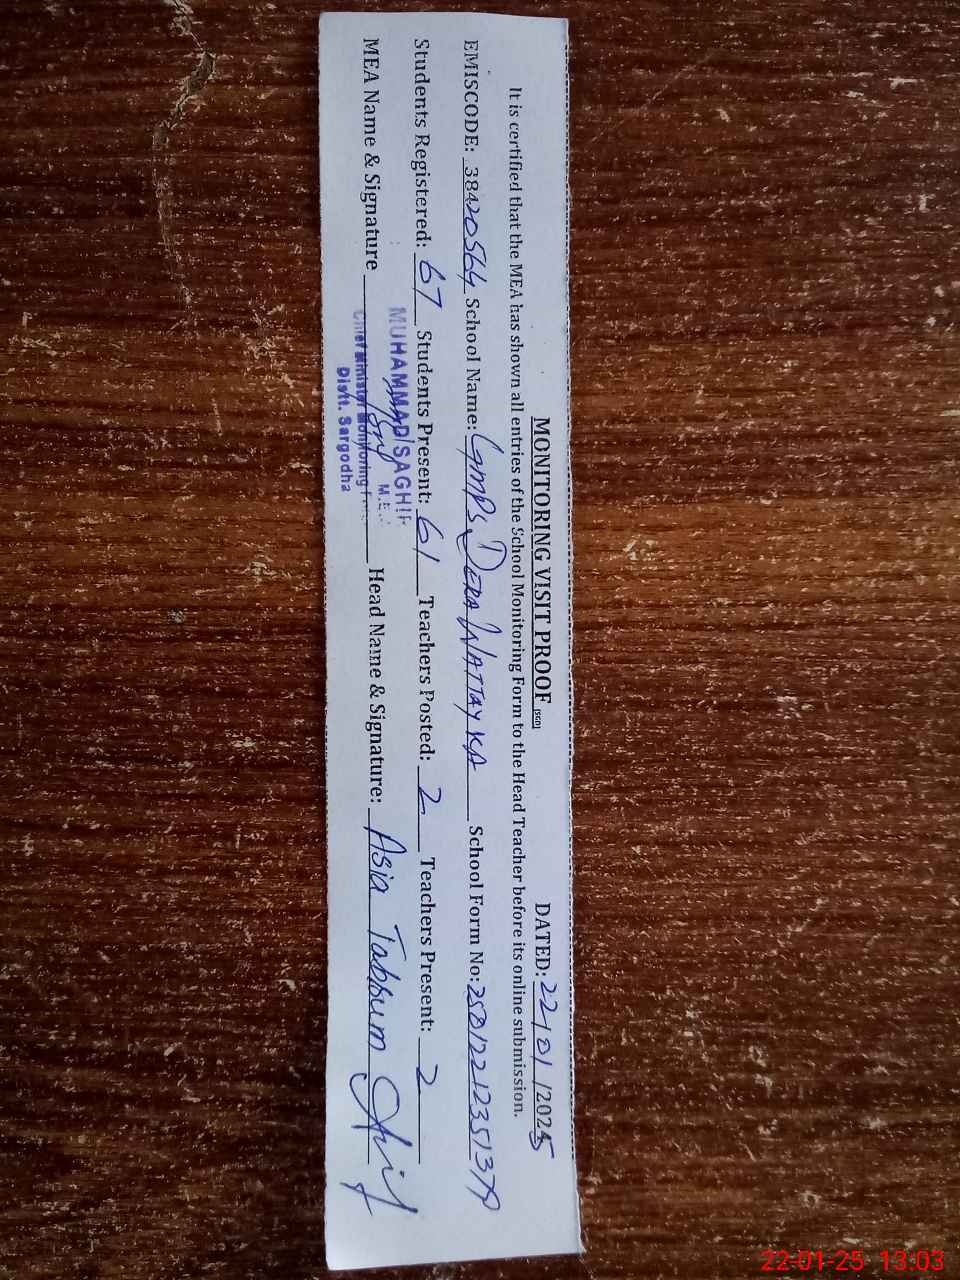 MONITORING VISIT PROOF [SGD] DATED: 22/01/2025
It is certified that the MEA has shown all entries of the School Monitoring Form to the Head Teacher before its online submission.
EMISCODE: 38420564 School Name: GMPS DERA WATTAY KA School Form No:
Students Registered: 67 Students Present: 61 Teachers Posted: 2 Teachers Present: 2
MEA Name & Signature Head Name & Signature: Asia Tabsum
MUHAMMAD SAGHIR
M.E.
Chief Minister Monitoring
Distt. Sargodha
22-01-25 13:03